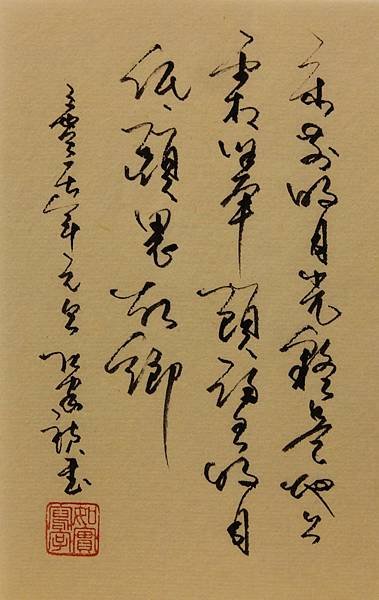 床前明月光疑是地上
霜舉頭望明月
低頭思故鄉
年元
如實